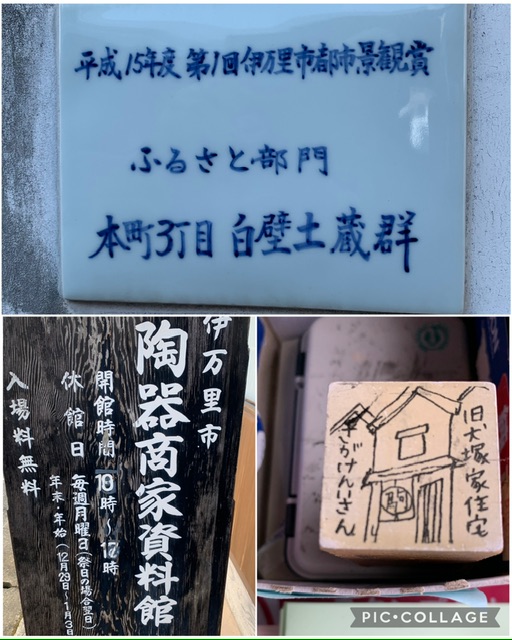 平成15年度 第1回伊万里市都市景観賞
ふるさと部門
本町3丁目 白壁土蔵群
伊万里市
陶器商家資料館
開館時間 10時〜17時
休館日 毎週月曜日(祭日の場合翌日)
年末・年始(12月29日〜1月3日
入場料無料
旧犬塚家住宅
PIC•COLLAGE